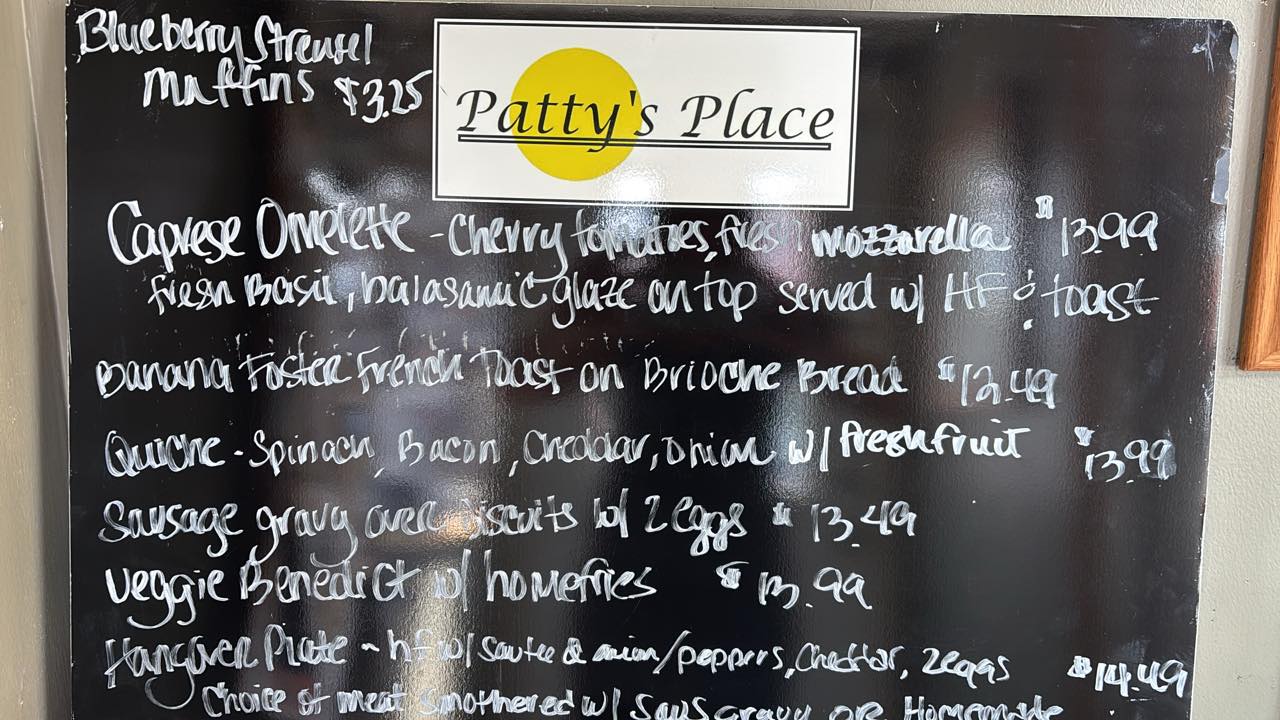 Blueberry Streusel
Muffins $3.25
Patty's Place
Caprese Omelette - Cherry tomatoes, fresh mozzarella $13.99
fresh Basil, balasamic glaze on top served w/ HF & toast
Banana Foster French Toast on Brioche Bread $12.49
Quiche - Spinach, Bacon, Cheddar, Onion w/ fresh fruit $13.99
Sausage gravy over biscuits w/ 2 eggs $13.49
Veggie Benedict w/ homefries $13.99
Hangover Plate - hf w/ sautee d onion/peppers, Cheddar, 2 eggs $14.49
Choice of meat smothered w/ Saus gravy or Homemade